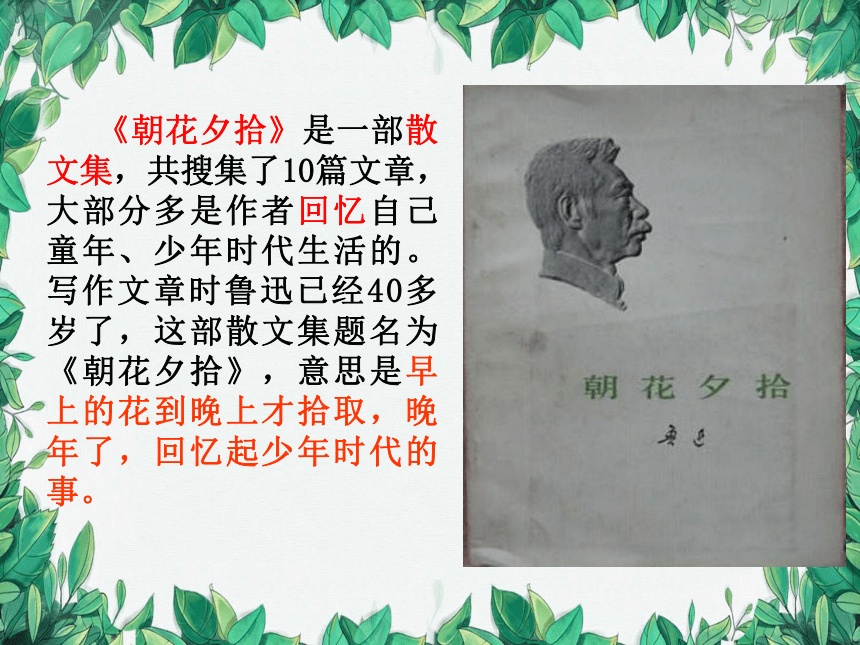 《朝花夕拾》是一部散
文集，共搜集了10篇文章，
大部分多是作者回忆自己
童年、少年时代生活的。
写作文章时鲁迅已经40多
岁了，这部散文集题名为
《朝花夕拾》，意思是早
上的花到晚上才拾取，晚
年了，回忆起少年时代的
事。
朝花夕拾
鲁迅